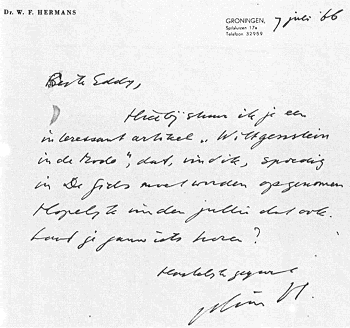 Dr. W. F. HERMANS
GRONINGEN,
Spilsluizen 17a
Telefoon 32959
7 juli '66
Beste Eddy,
Hierbij stuur ik je een
interessant artikel „Wittgenstein
in de Mode", dat, vind ik, spoedig
in De Gids moet worden opgenomen
Hopelijk vinden jullie dat ook.
Laat je gauw iets horen?
Hartelijke gegroet